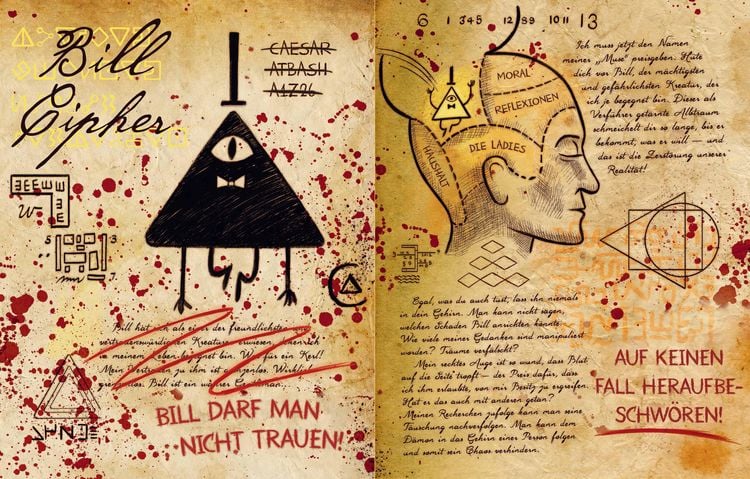 Bill
Cipher
CAESAR
ATBASH
A1Z26
Bill hat sich als einer der freundlichsten und
vertrauenswürdigen Kreaturen erwiesen, denen ich
in meinem Leben begegnet bin. W für ein Kerl!
Mein Vertrauen zu ihm ist grenzenlos. Wirklich
grenzenlos. Bill ist ein wahrer Gentleman.
BILL DARF MAN
NICHT TRAUEN!
6 1 345 12 99 10 11 13
MORAL
REFLEXIONEN
DIE LADIES
HAUSHALT
Ich muss jetzt den Namen
meiner „Muse" preisgeben. Hüte
dich vor Bill, der mächtigsten
und gefährlichsten Kreatur, der
ich je begegnet bin. Dieser als
Verführer getarnte Albtraum
schmeichelt dir so lange, bis er
bekommt, was er will — und
das ist die Zerstörung unserer
Realität!
Egal, was du auch tust, lass ihn niemals
in dein Gehirn. Man kann nicht sagen,
welchen Schaden Bill anrichten könnte.
Wie viele meiner Gedanken sind manipuliert
worden? Träume verfälscht?
Mein rechtes Auge ist so wund, dass Blut
auf die Seite tropft — der Preis dafür, dass
ich ihm erlaubte, von mir Besitz zu ergreifen.
Hat er das auch mit anderen getan?
Meinen Recherchen zufolge kann man seine
Täuschung nachverfolgen. Man kann dem
Dämon in das Gehirn einer Person folgen
und somit sein Chaos verhindern.
AUF KEINEN
FALL HERAUFBE-
SCHWÖREN!